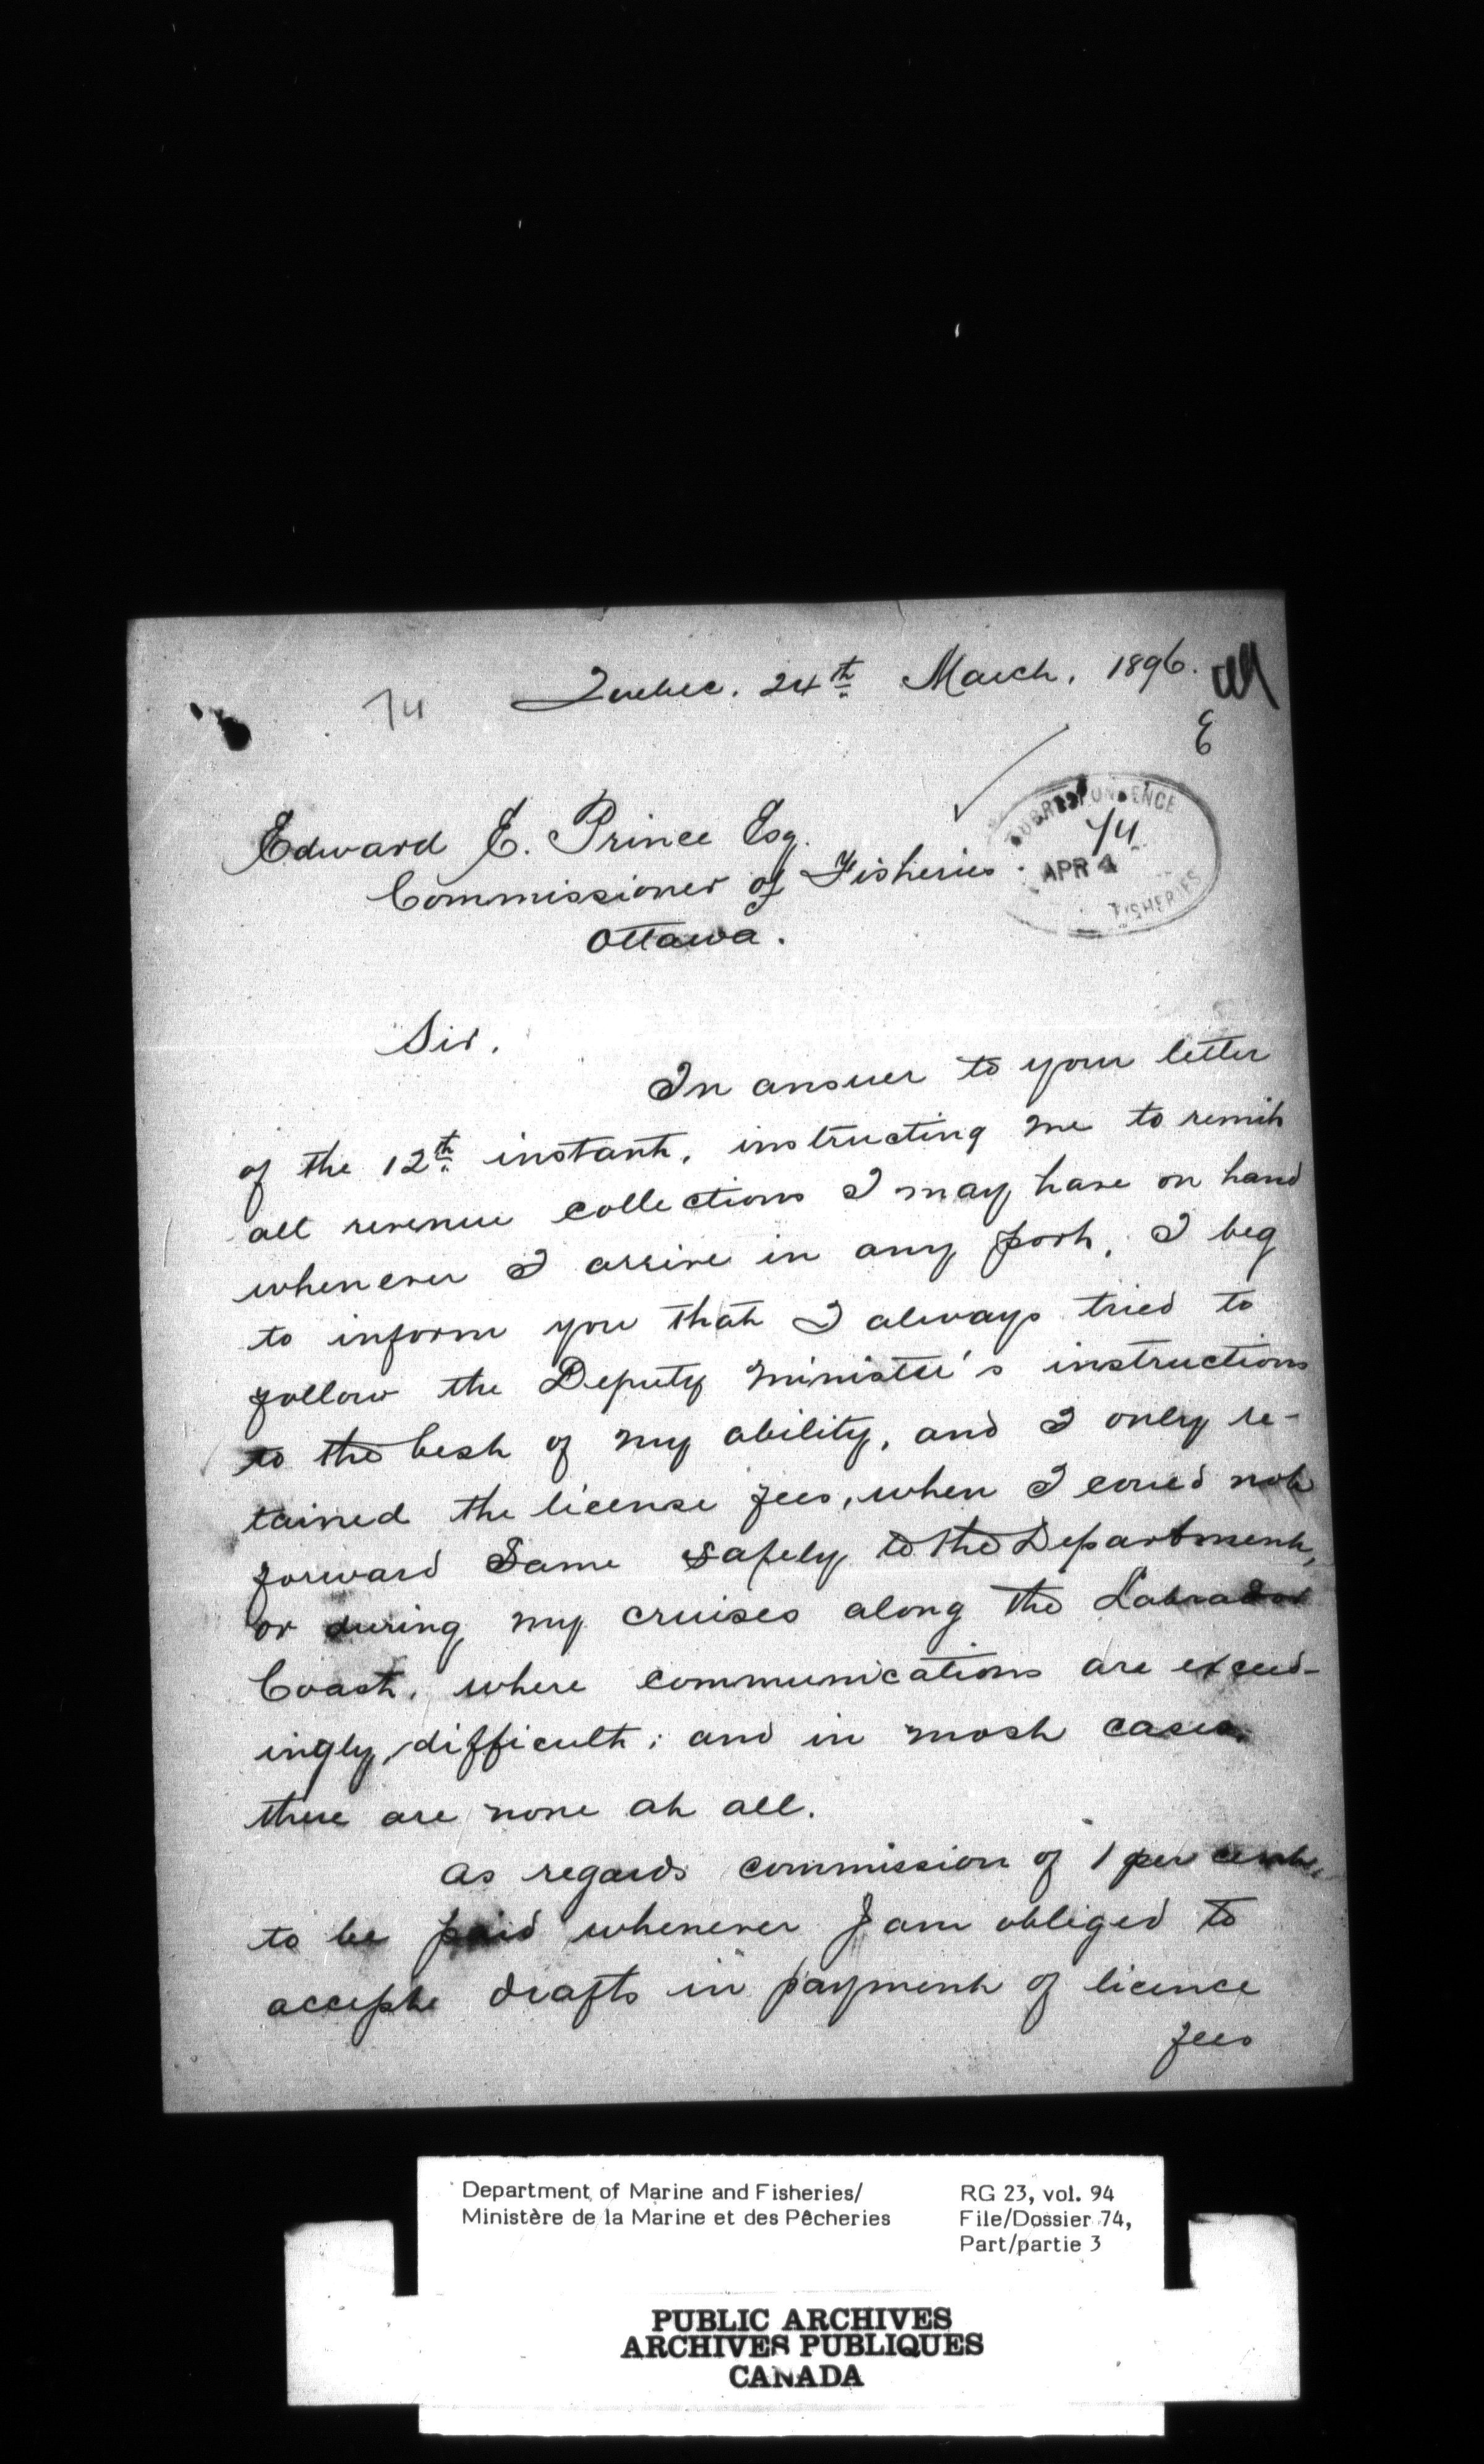 Quebec. 24th March, 1896.
74
E
Edward E. Prince Esq.
Commissioner of Fisheries.
Ottawa.
CORRESPONDENCE
74
APR 4
FISHERIES
Sir,
In answer to your letter
of the 12th instant, instructing me to remit
all revenue collections I may have on hand
whenever I arrive in any port, I beg
to inform you that I always tried to
follow the Deputy Minister's instructions
to the best of my ability, and I only re-
tained the license fees, when I could not
forward same safely to the Department,
or during my cruises along the Labrador
Coast, where communications are exceed-
ingly difficult; and in most cases
there are none at all.
As regards commission of 1 per cent,
to be paid whenever I am obliged to
accept drafts in payment of licence
fees
Department of Marine and Fisheries/
Ministère de la Marine et des Pêcheries
RG 23, vol. 94
File/Dossier 74,
Part/partie 3
PUBLIC ARCHIVES
ARCHIVES PUBLIQUES
CANADA